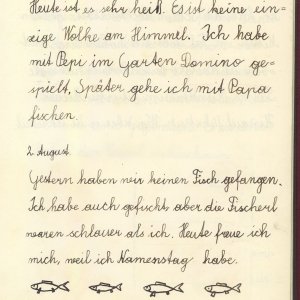 Heute ist es sehr heiß. Es ist keine ein-
zige Wolke am Himmel. Ich habe
mit Pepi im Garten Domino ge-
spielt. Später gehe ich mit Papa
fischen.
2 August.
Gestern haben wir keinen Fisch gefangen.
Ich habe auch gefischt aber die Fischerl
waren schlauer als ich. Heute freue ich
mich, weil ich Namenstag habe.